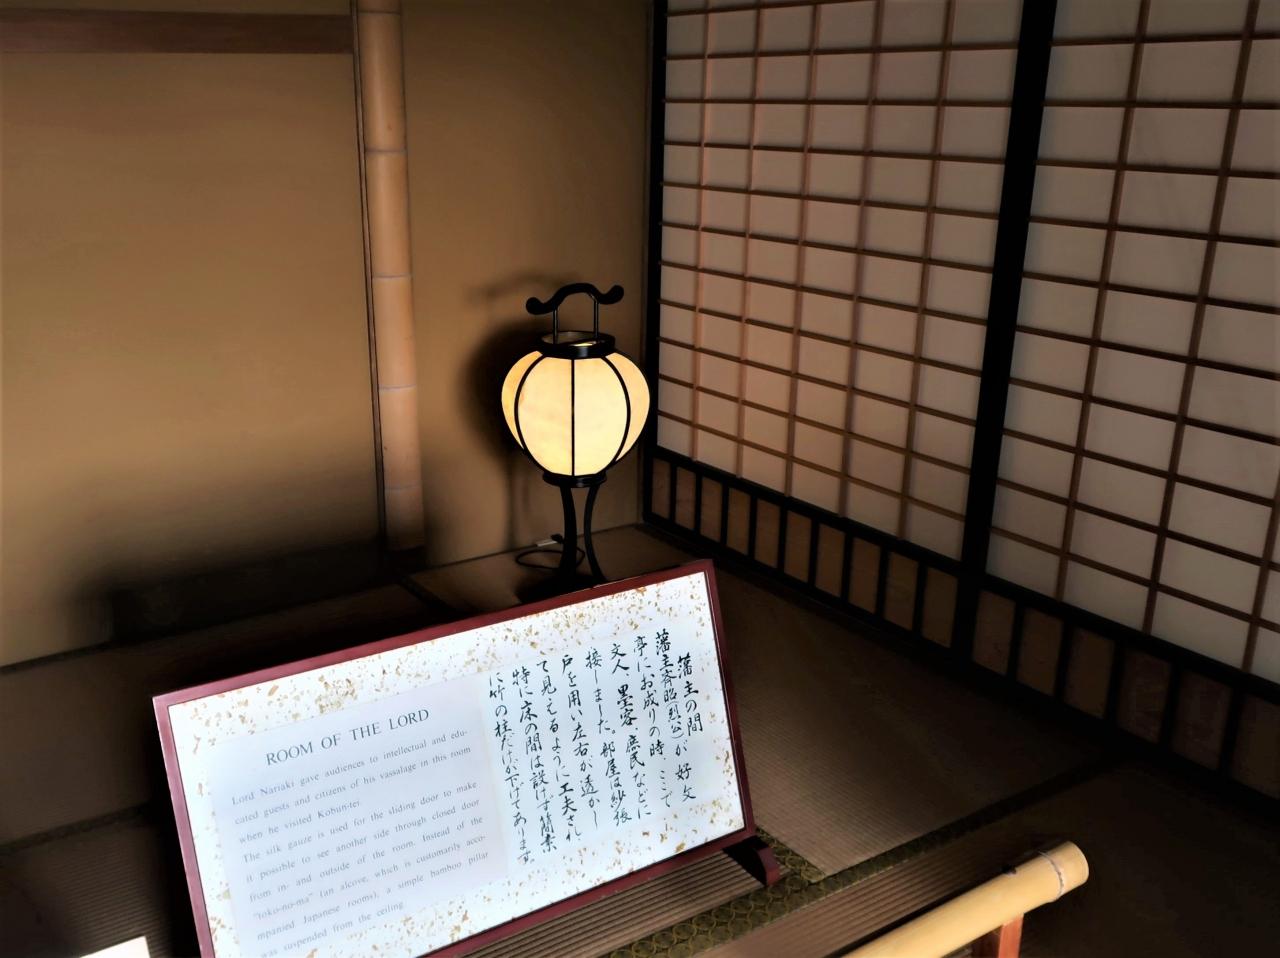 ROOM OF THE LORD
Lord Nariaki gave audiences to intellectual and edu-
cated guests and citizens of his vassalage in this room
when he visited Kobun-tei.
The silk gauze is used for the sliding door to make
it possible to see another side through closed door
from in- and outside of the room. Instead of the
"toko-no-ma" (an alcove, which is customarily acco-
mpanied Japanese rooms), a simple bamboo pillar
was suspended from the ceiling
藩主の間
藩主斉昭(烈公)が 好文
亭にお成りの時、ここで
文人、墨客、庶民などに
接しました。部屋は紗張
戸を用い左右が透かし
て見えるように工夫され、
特に床の間は設けず簡素
に竹の柱だけが下げてあります。